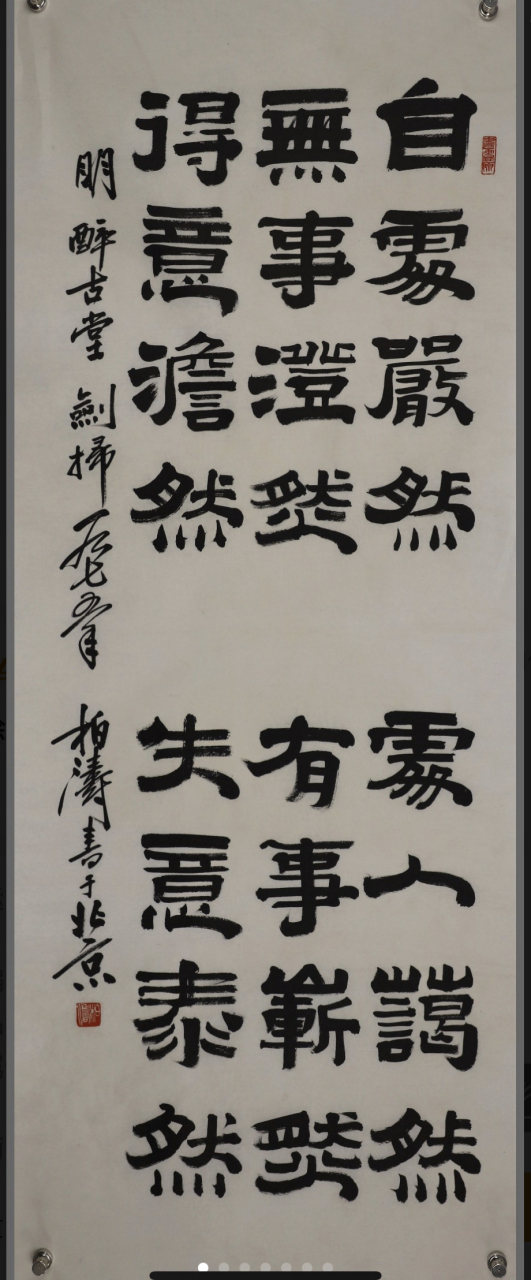 自處嚴然 處人藹然
無事澄然 有事嶄然
得意澹然 失意泰然
明 醉古堂 劍掃 一九七五年 柏濤書于北京